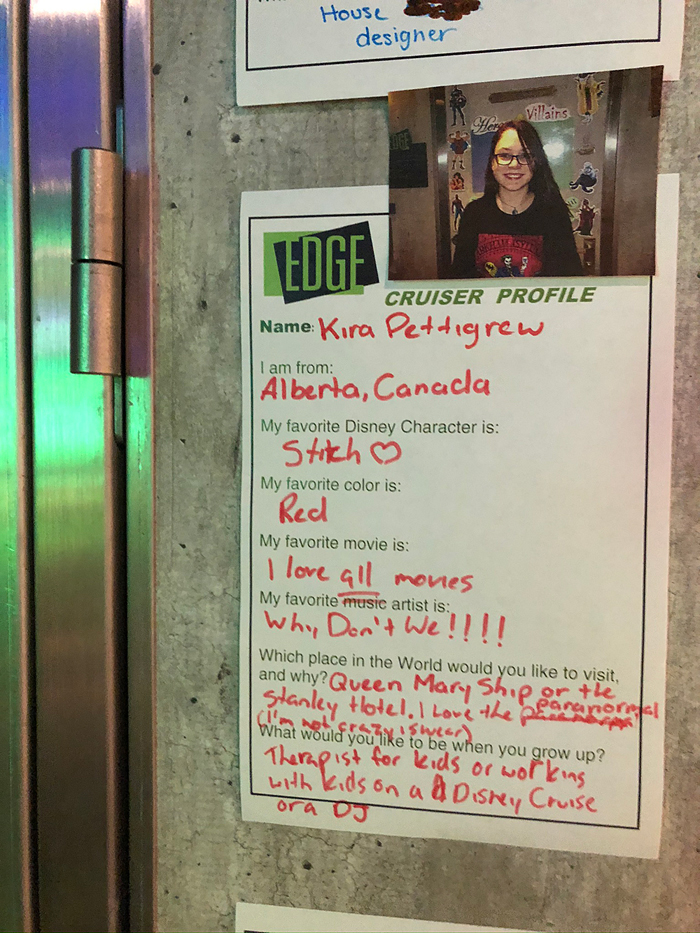 House
designer
Villains
EDGE
EDGE
CRUISER PROFILE
Name: Kira Pettigrew
I am from:
Alberta, Canada
My favorite Disney Character is:
Stitch ♡
My favorite color is:
Red
My favorite movie is:
I love all movies
My favorite music artist is:
Why Don't We!!!!
Which place in the World would you like to visit,
and why? Queen Mary Ship or the
Stanley Hotel. I Love the paranormal
(I'm not crazy i swear)
What would you like to be when you grow up?
Therapist for kids or working
with kids on a Disney Cruise
or a DJ